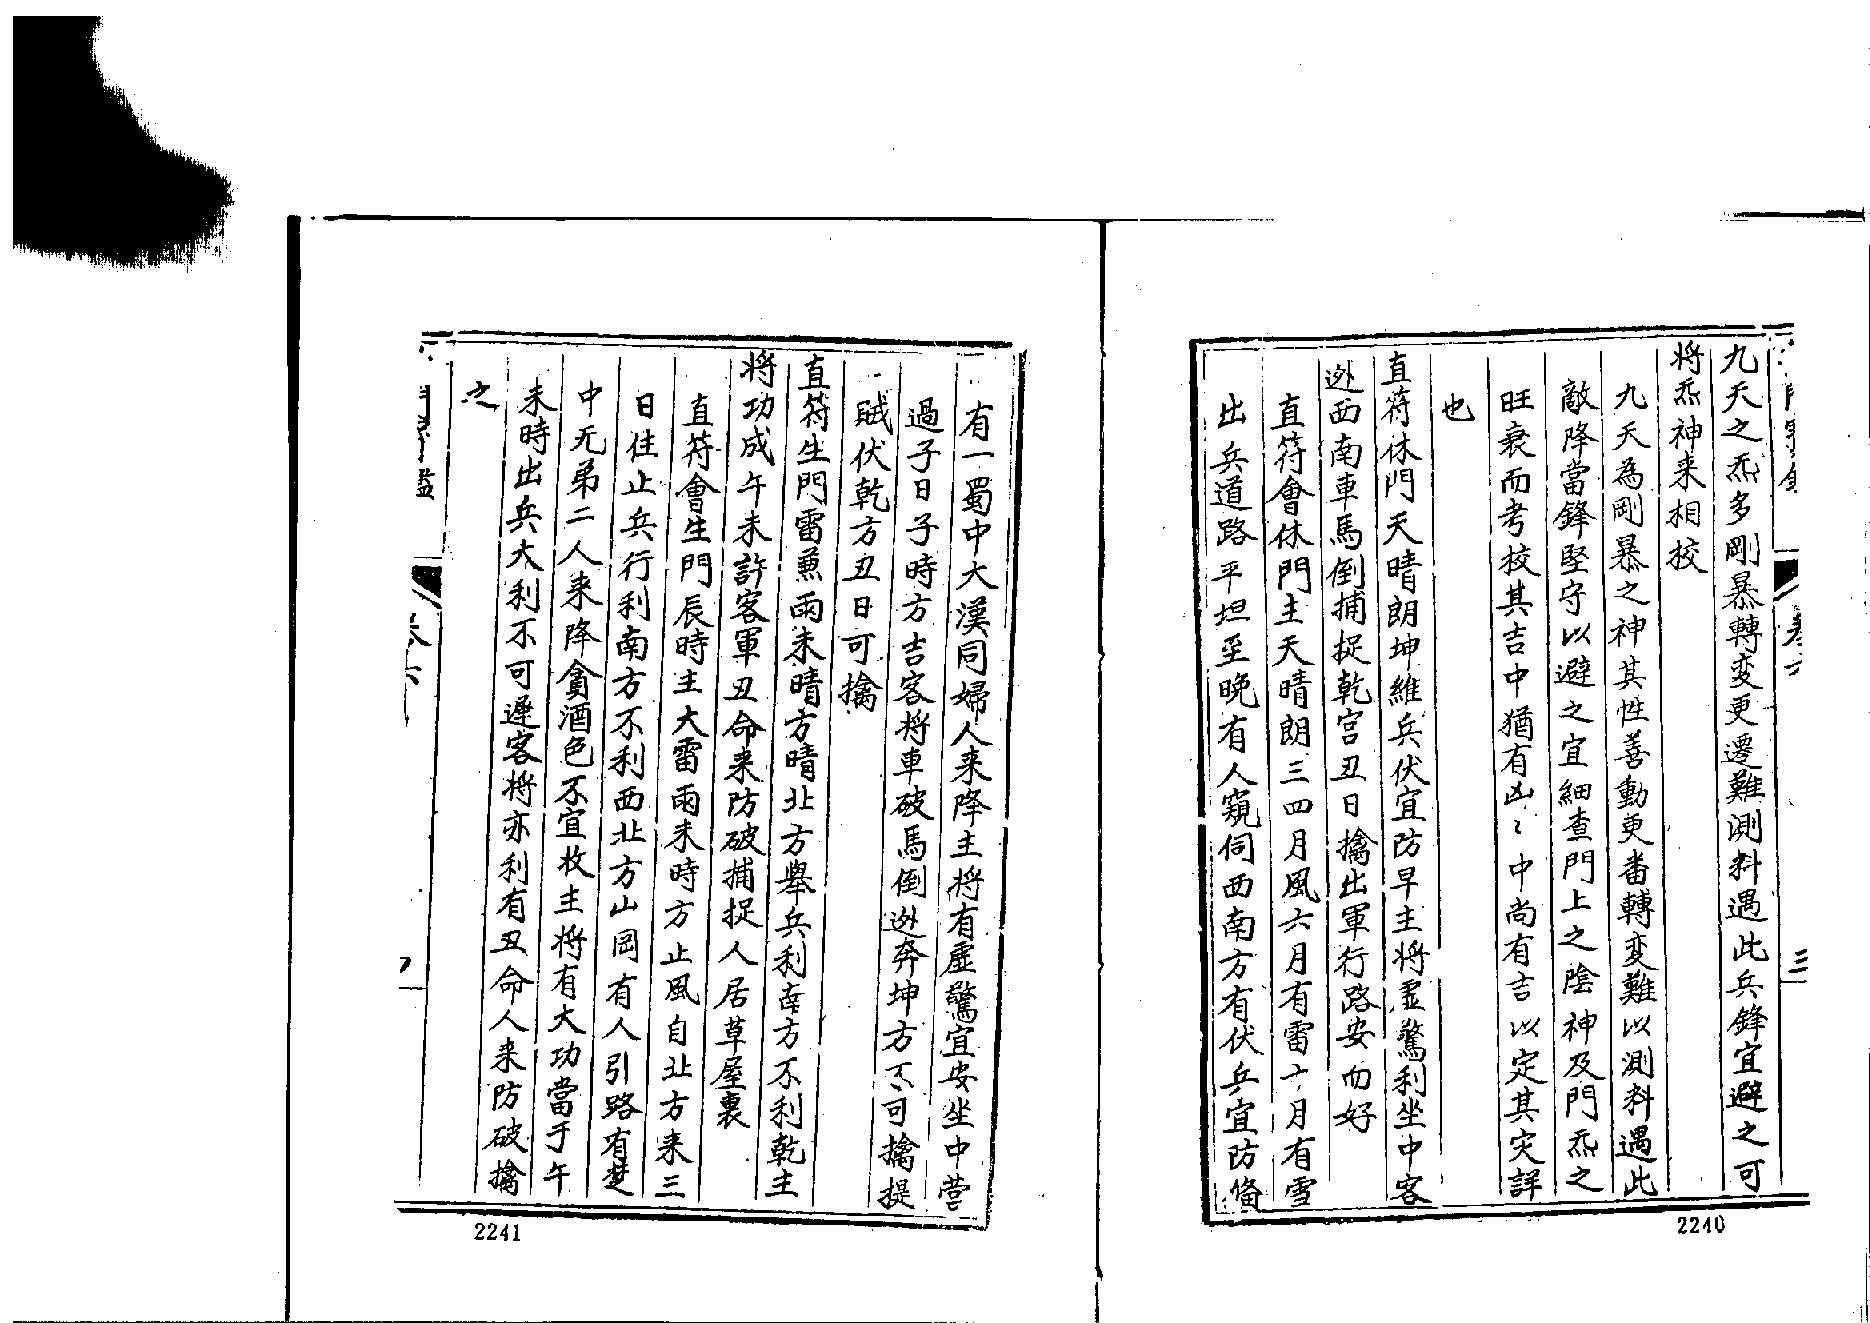 九天之炁多剛暴轉変更遷難測料遇此兵鋒宜避之可
將炁神来相挍
九天為剛暴之神其性善動更番轉変難以測料遇此
敵降當鋒堅守以避之宜細查門上之陰神及門炁之
旺衰而考校其吉中猶有凶〻中尚有吉以定其灾詳
也
直符休門天晴朗坤維兵伏宜防早主將虛驚利坐中客
迯西南車馬倒捕捉乾宫丑日擒出軍行路安而好
直符會休門主天晴朗三四月風六月有雷十月有雪
出兵道路平坦至晚有人窺伺西南方有伏兵宜防俻
2240
有一蜀中大漢同婦人来降主將有虛驚宜安坐中营
過子日子時方吉客將車破馬倒迯奔坤方不可擒提
賊伏乾方丑日可擒
直符生門雷兼雨未晴方晴北方舉兵利南方不利乾主
將功成午未許客軍丑命来防破捕捉人居草屋裏
直符會生門辰時主大雷雨未時方止風自北方来三
日住止兵行利南方不利西北方山岡有人引路有楚
中兄弟二人来降貪酒色不宜收主將有大功當于午
未時出兵大利不可遲客將亦利有丑命人来防破擒
之
卷六
2241